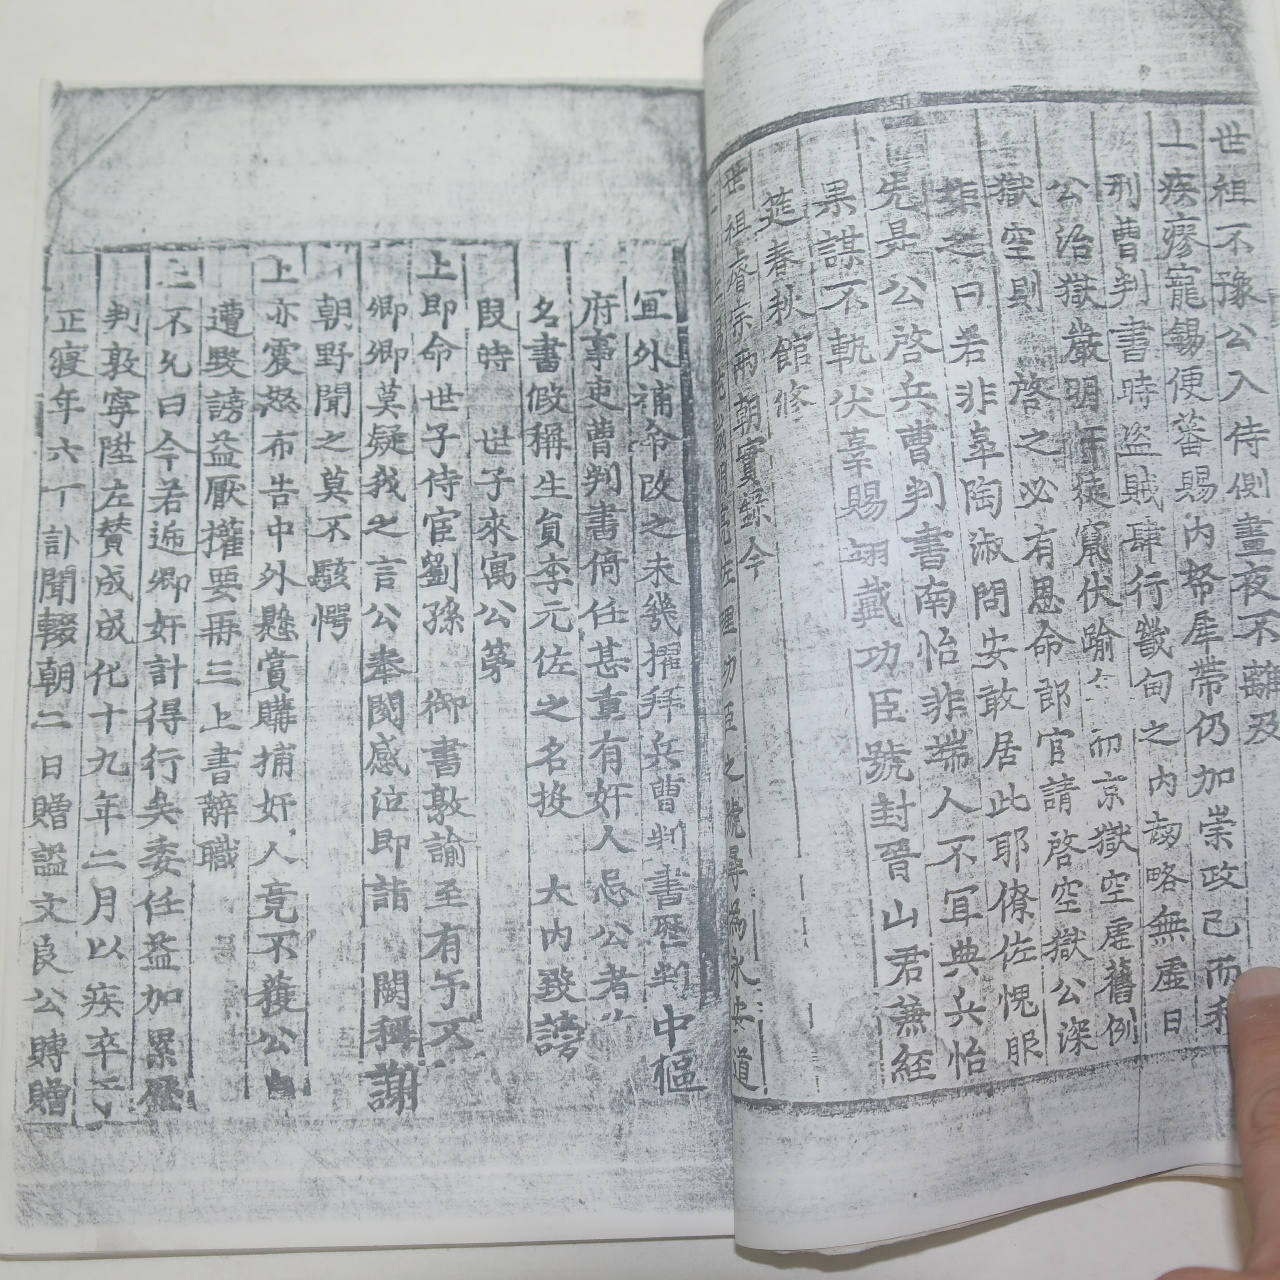 世祖不豫公入侍側晝夜不離及
上疾瘳寵錫便蕃賜內帑犀帶仍加崇政已而
刑曹判書時盜賊肆行畿甸之內劫略無虛日
公治獄嚴明奸徒竄伏踰 而京獄空虛舊例
獄空則 啓之必有恩命郎官請啓空獄公深
非之曰若非皐陶淑問安敢居此耶僚佐愧服
先是公啓兵曹判書南怡非端人不宜典兵怡
果謀不軌伏辜賜翊戴功臣號封晉山君兼經
筵春秋館修
世祖睿宗兩朝實錄今
上 佐理功臣之號尋爲永安道
宜外補命改之未幾擢拜兵曹判書歷判中樞
府事吏曹判書倚任甚重有奸人忌公者
名書假稱生員李元佐之名投 大內毀謗
叚時 世子來寓公第
上卽命世子侍宦劉孫 御書敦諭至有予不
卿卿莫疑我之言公奉閱感泣卽詣 闕稱謝
朝野聞之莫不駭愕
上亦震怒布告中外懸賞購捕奸人竟不獲公自
遭毀謗益厭權要再三上書辭職
上不允曰今若遞卿奸計得行矣委任益加累歷
判敦寧陞左贊成成化十九年二月以疾卒于
正寢年六丁 訃聞輟朝二日贈諡文良公賻贈